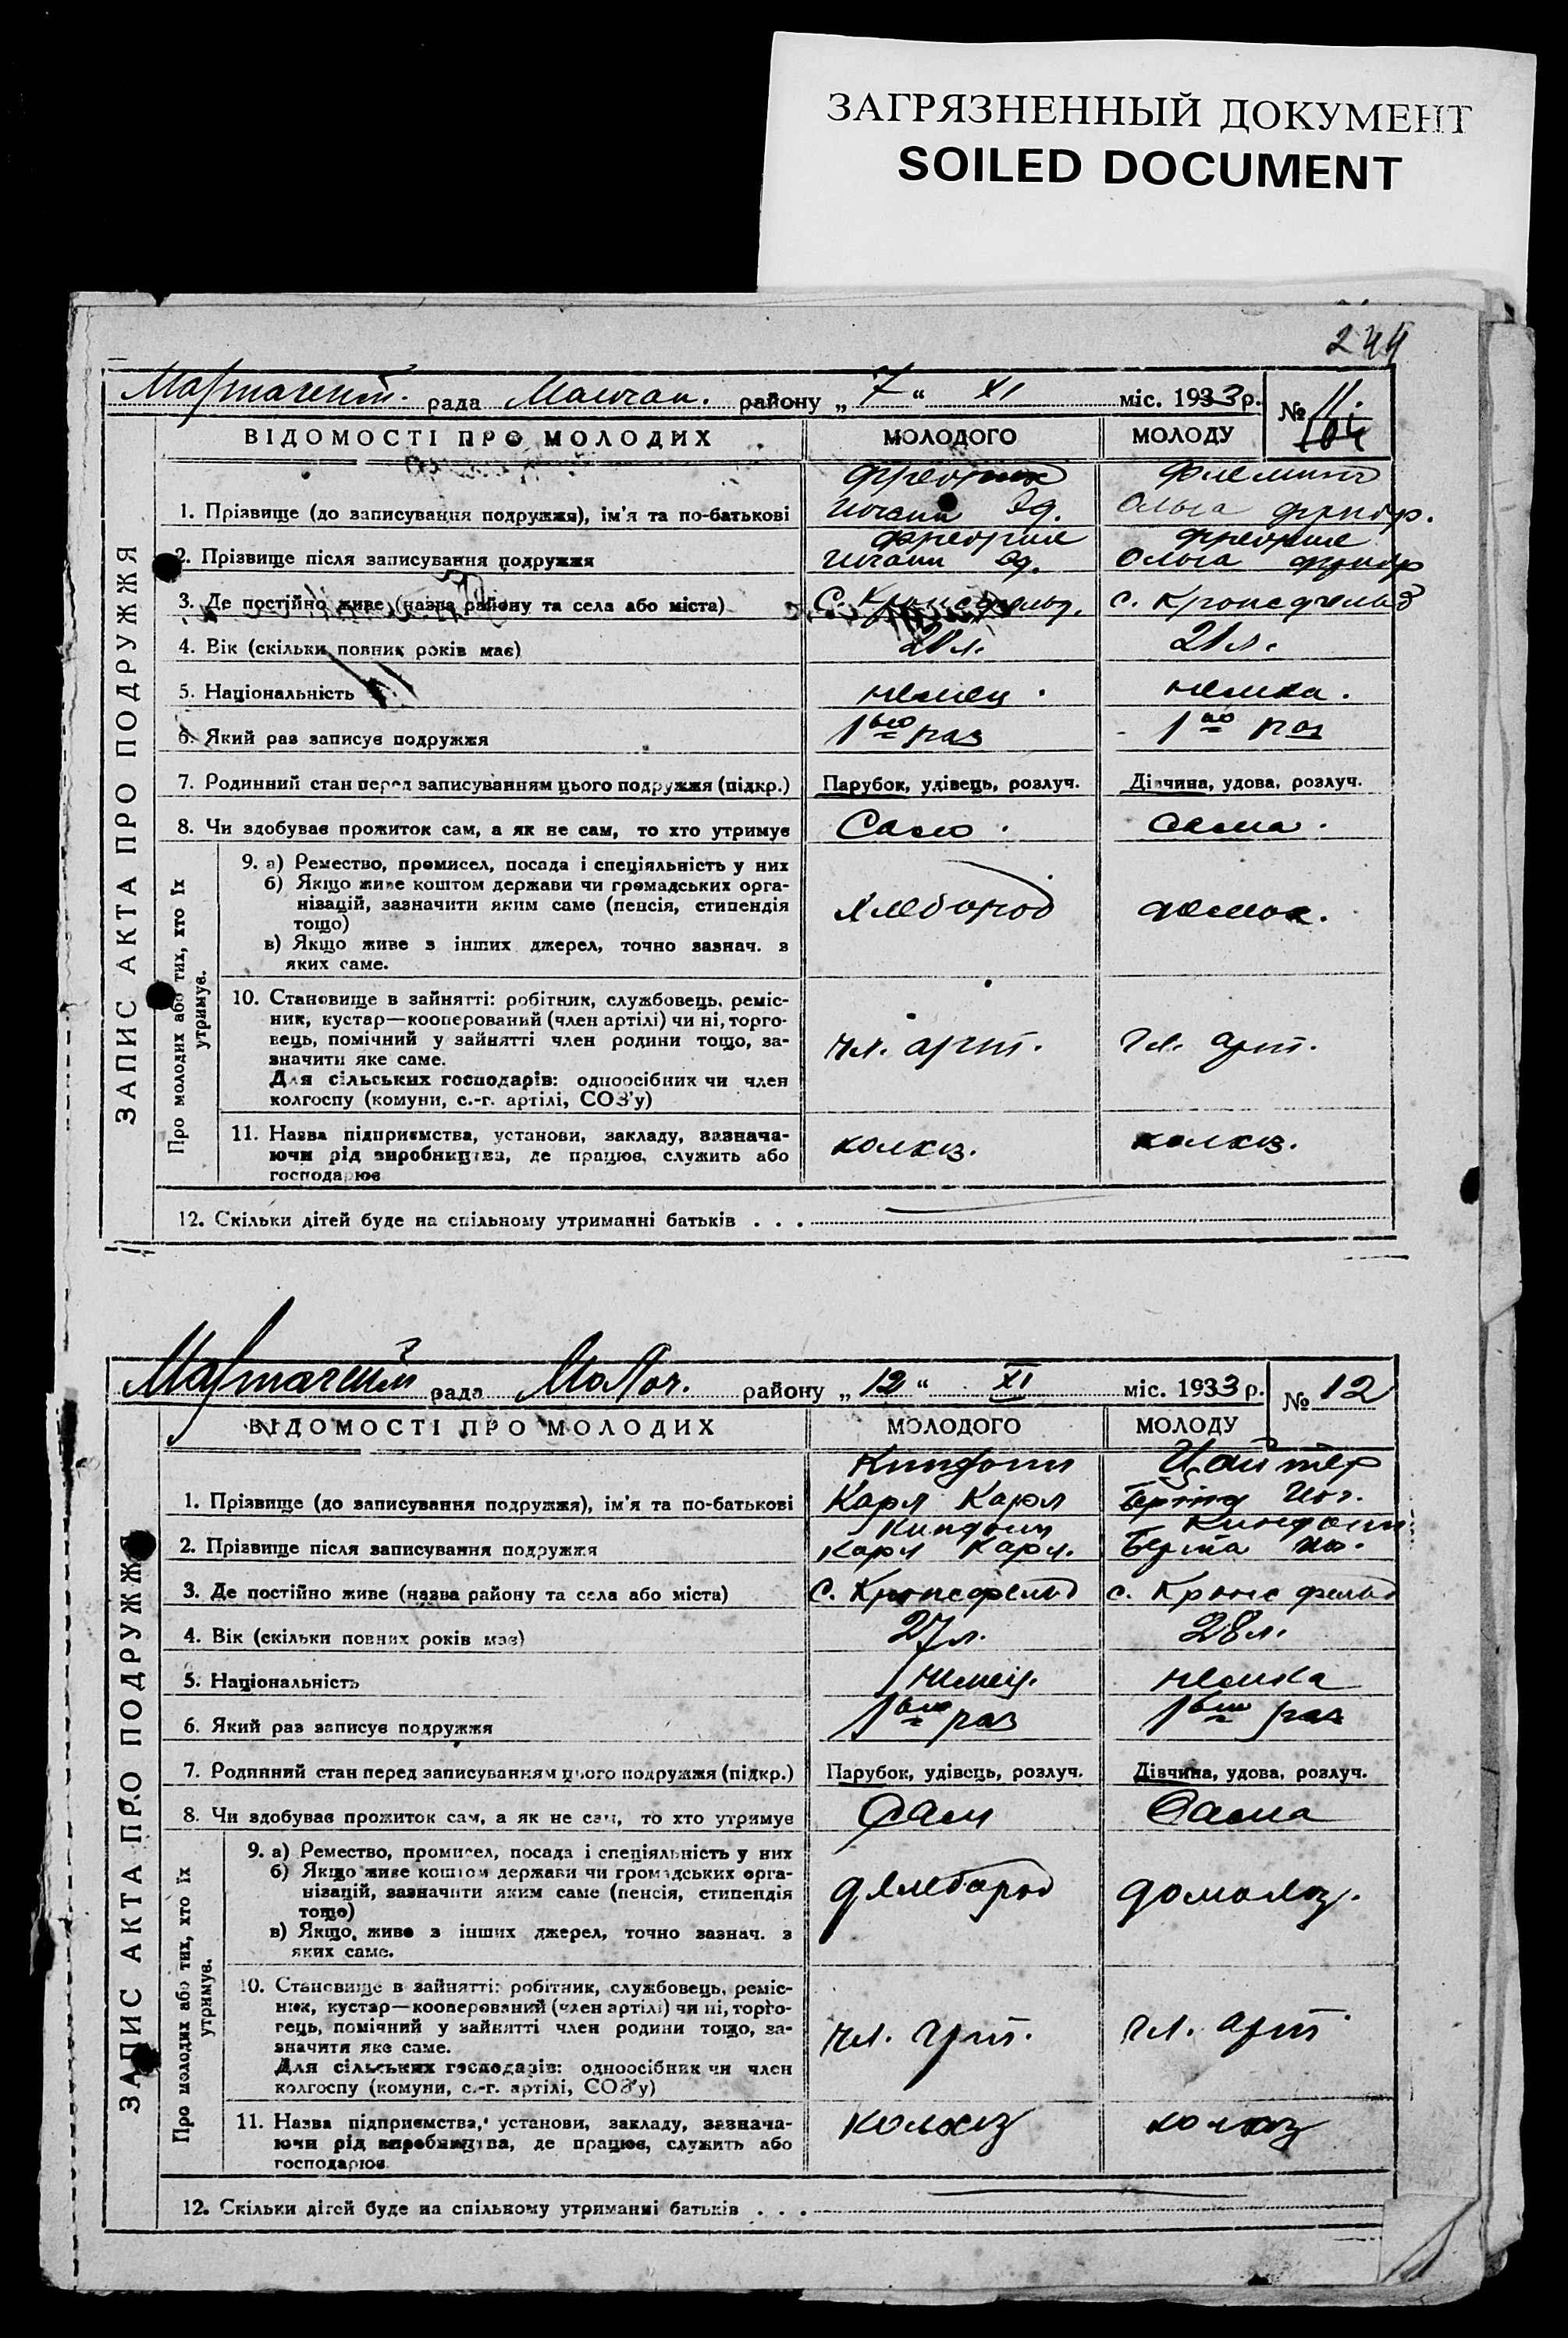 ЗАГРЯЗНЕННЫЙ ДОКУМЕНТ
SOILED DOCUMENT
244
рада района „ 7 “ XI міс. 1933 р. № 11
ВІДОМОСТІ ПРО МОЛОДИХ МОЛОДОГО МОЛОДУ
ЗАПИС АКТА ПРО ПОДРУЖЖЯ
1. Прізвище (до записування подружжя), ім'я та по-батькові Эд. Ольга
2. Прізвище після записування подружжя Эд. Ольга
3. Де постійно живе (назва району та села або міста) с. Кронсфельд. с. Кронсфельд
4. Вік (скільки повних років має) 21 л.
5. Національність немец. немка.
6. Який раз записує подружжя раз раз
7. Родинний стан перед записуванням цього подружжя (підкр.) Парубок, удівець, розлуч. Дівчина, удова, розлуч.
8. Чи здобуває прожиток сам, а як не сам, то хто утримує сама.
Про молодих або тих, хто їх утримує.
9. а) Ремество, промисел, посада і спеціяльність у них
б) Якщо живе коштом держави чи громадських орга-
нізацій, зазначити яким саме (пенсія, стипендія
тощо)
в) Якщо живе з інших джерел, точно зазнач. з
яких саме.
10. Становище в зайнятті: робітник, службовець, реміс-
ник, кустар—кооперований (член артілі) чи ні, торго-
вець, помічний у зайнятті член родини тощо, за-
значити яке саме. чл. арт. чл. арт.
Для сільських господарів: одноосібник чи член
колгоспу (комуни, с.-г. артілі, СОЗ'у)
11. Назва підприємства, установи, закладу, зазнача-
ючи рід виробництва, де працює, служить або колхоз. колхоз.
господарює
12. Скільки дітей буде на спільному утриманні батьків . . .
рада Молоч. району „ 12 “ XI міс. 1933 р. № 12
ВІДОМОСТІ ПРО МОЛОДИХ МОЛОДОГО МОЛОДУ
ЗАПИС АКТА ПРО ПОДРУЖЖЯ
1. Прізвище (до записування подружжя), ім'я та по-батькові Карл Карл
2. Прізвище після записування подружжя Карл Карл. Берта
3. Де постійно живе (назва району та села або міста) с. Кронсфельд с. Кронсфельд
4. Вік (скільки повних років має) 27 л. 28 л.
5. Національність немец. немка
6. Який раз записує подружжя раз раз
7. Родинний стан перед записуванням цього подружжя (підкр.) Парубок, удівець, розлуч. Дівчина, удова, розлуч.
8. Чи здобуває прожиток сам, а як не сам, то хто утримує Сам Сама
Про молодих або тих, хто їх утримує.
9. а) Ремество, промисел, посада і спеціяльність у них
б) Якщо живе коштом держави чи громадських орга-
нізацій, зазначити яким саме (пенсія, стипендія домохоз.
тощо)
в) Якщо живе з інших джерел, точно зазнач. з
яких саме.
10. Становище в зайнятті: робітник, службовець, реміс-
ник, кустар—кооперований (член артілі) чи ні, торго-
вець, помічний у зайнятті член родини тощо, за-
значити яке саме. чл. арт. чл. арт.
Для сільських господарів: одноосібник чи член
колгоспу (комуни, с.-г. артілі, СОЗ'у)
11. Назва підприємства, установи, закладу, зазнача-
ючи рід виробництва, де працює, служить або колхоз колхоз
господарює
12. Скільки дітей буде на спільному утриманні батьків . . .